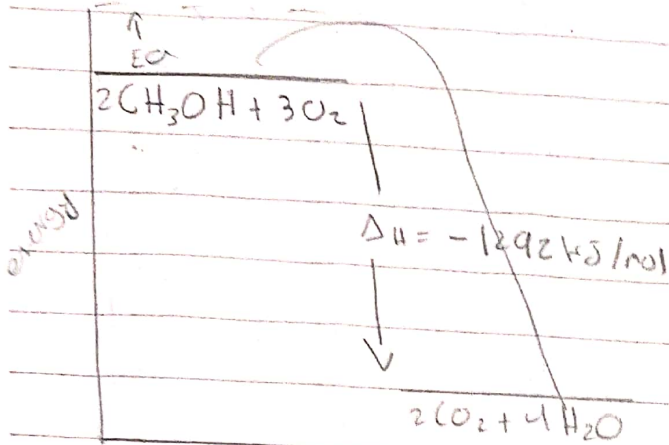 Ea
2CH₃OH + 3O₂
energy
ΔH = -1292 kJ/mol
2CO₂ + 4H₂O